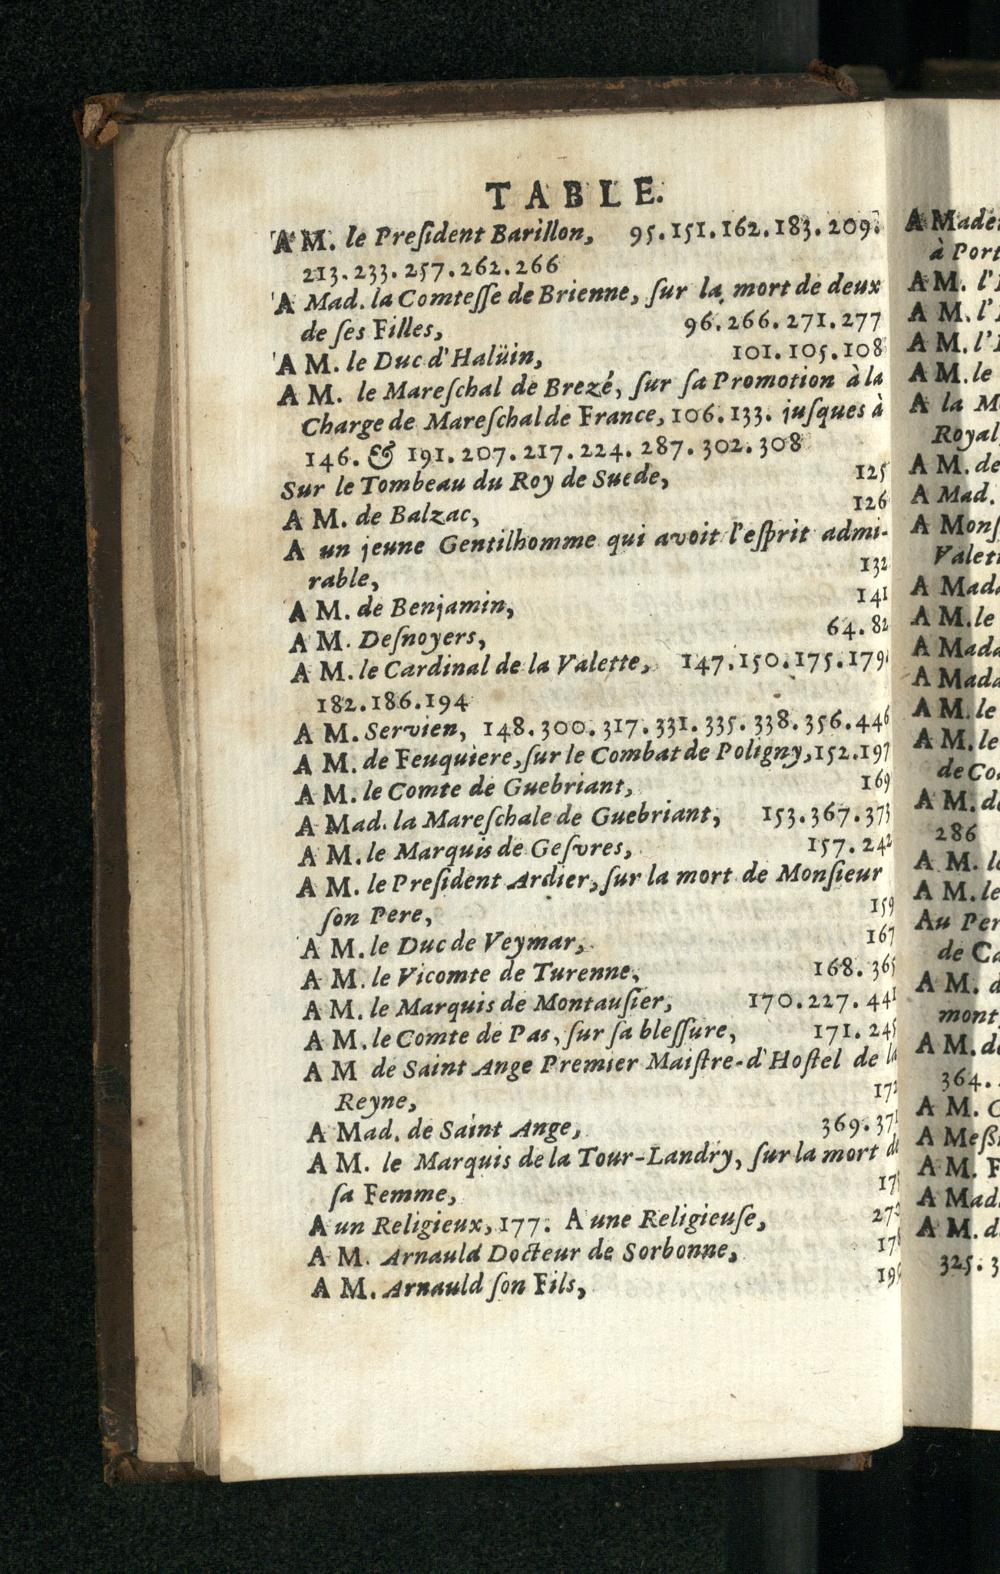 TABLE.
A M. le Preſident Barillon, 95.151.162.183.209.
213.233.257.262.266
A Mad. la Comteſſe de Brienne, ſur la mort de deux
de ſes Filles, 96.266.271.277
A M. le Duc d'Halüin, 101.105.108
A M. le Mareſchal de Brezé, ſur ſa Promotion à la
Charge de Mareſchal de France, 106.133. juſques à
146. & 191.207.217.224.287.302.308
Sur le Tombeau du Roy de Suede, 125
A M. de Balzac, 126
A un jeune Gentilhomme qui avoit l'eſprit admi-
rable, 132
A M. de Benjamin, 141
A M. Deſnoyers, 64.82
A M. le Cardinal de la Valette, 147.150.175.179
182.186.194
A M. Servien, 148.300.317.331.335.338.356.446
A M. de Feuquiere, ſur le Combat de Poligny, 152.197
A M. le Comte de Guebriant, 169
A Mad. la Mareſchale de Guebriant, 153.367.373
A M. le Marquis de Geſvres, 157.242
A M. le Preſident Ardier, ſur la mort de Monſieur
ſon Pere, 159
A M. le Duc de Veymar, 167
A M. le Vicomte de Turenne, 168.365
A M. le Marquis de Montauſier, 170.227.441
A M. le Comte de Pas, ſur ſa bleſſure, 171.245
A M de Saint Ange Premier Maiſtre-d'Hoſtel de la
Reyne, 172
A Mad. de Saint Ange, 369.371
A M. le Marquis de la Tour-Landry, ſur la mort de
ſa Femme,
A un Religieux, 177. A une Religieuſe,
A M. Arnauld Docteur de Sorbonne,
A M. Arnauld ſon Fils,
A
à
A M. l'
A M. l'
A M. l'
A M. le
A la
Royal,
A M. de
A Mad.
A
A
A M. le
A
A
A M. le
A M. le
de
A M.
286
A M.
A M. le
Au
de
A M.
mont,
A M.
364.
A M.
A
A M.
A Mad.
A M.
325.